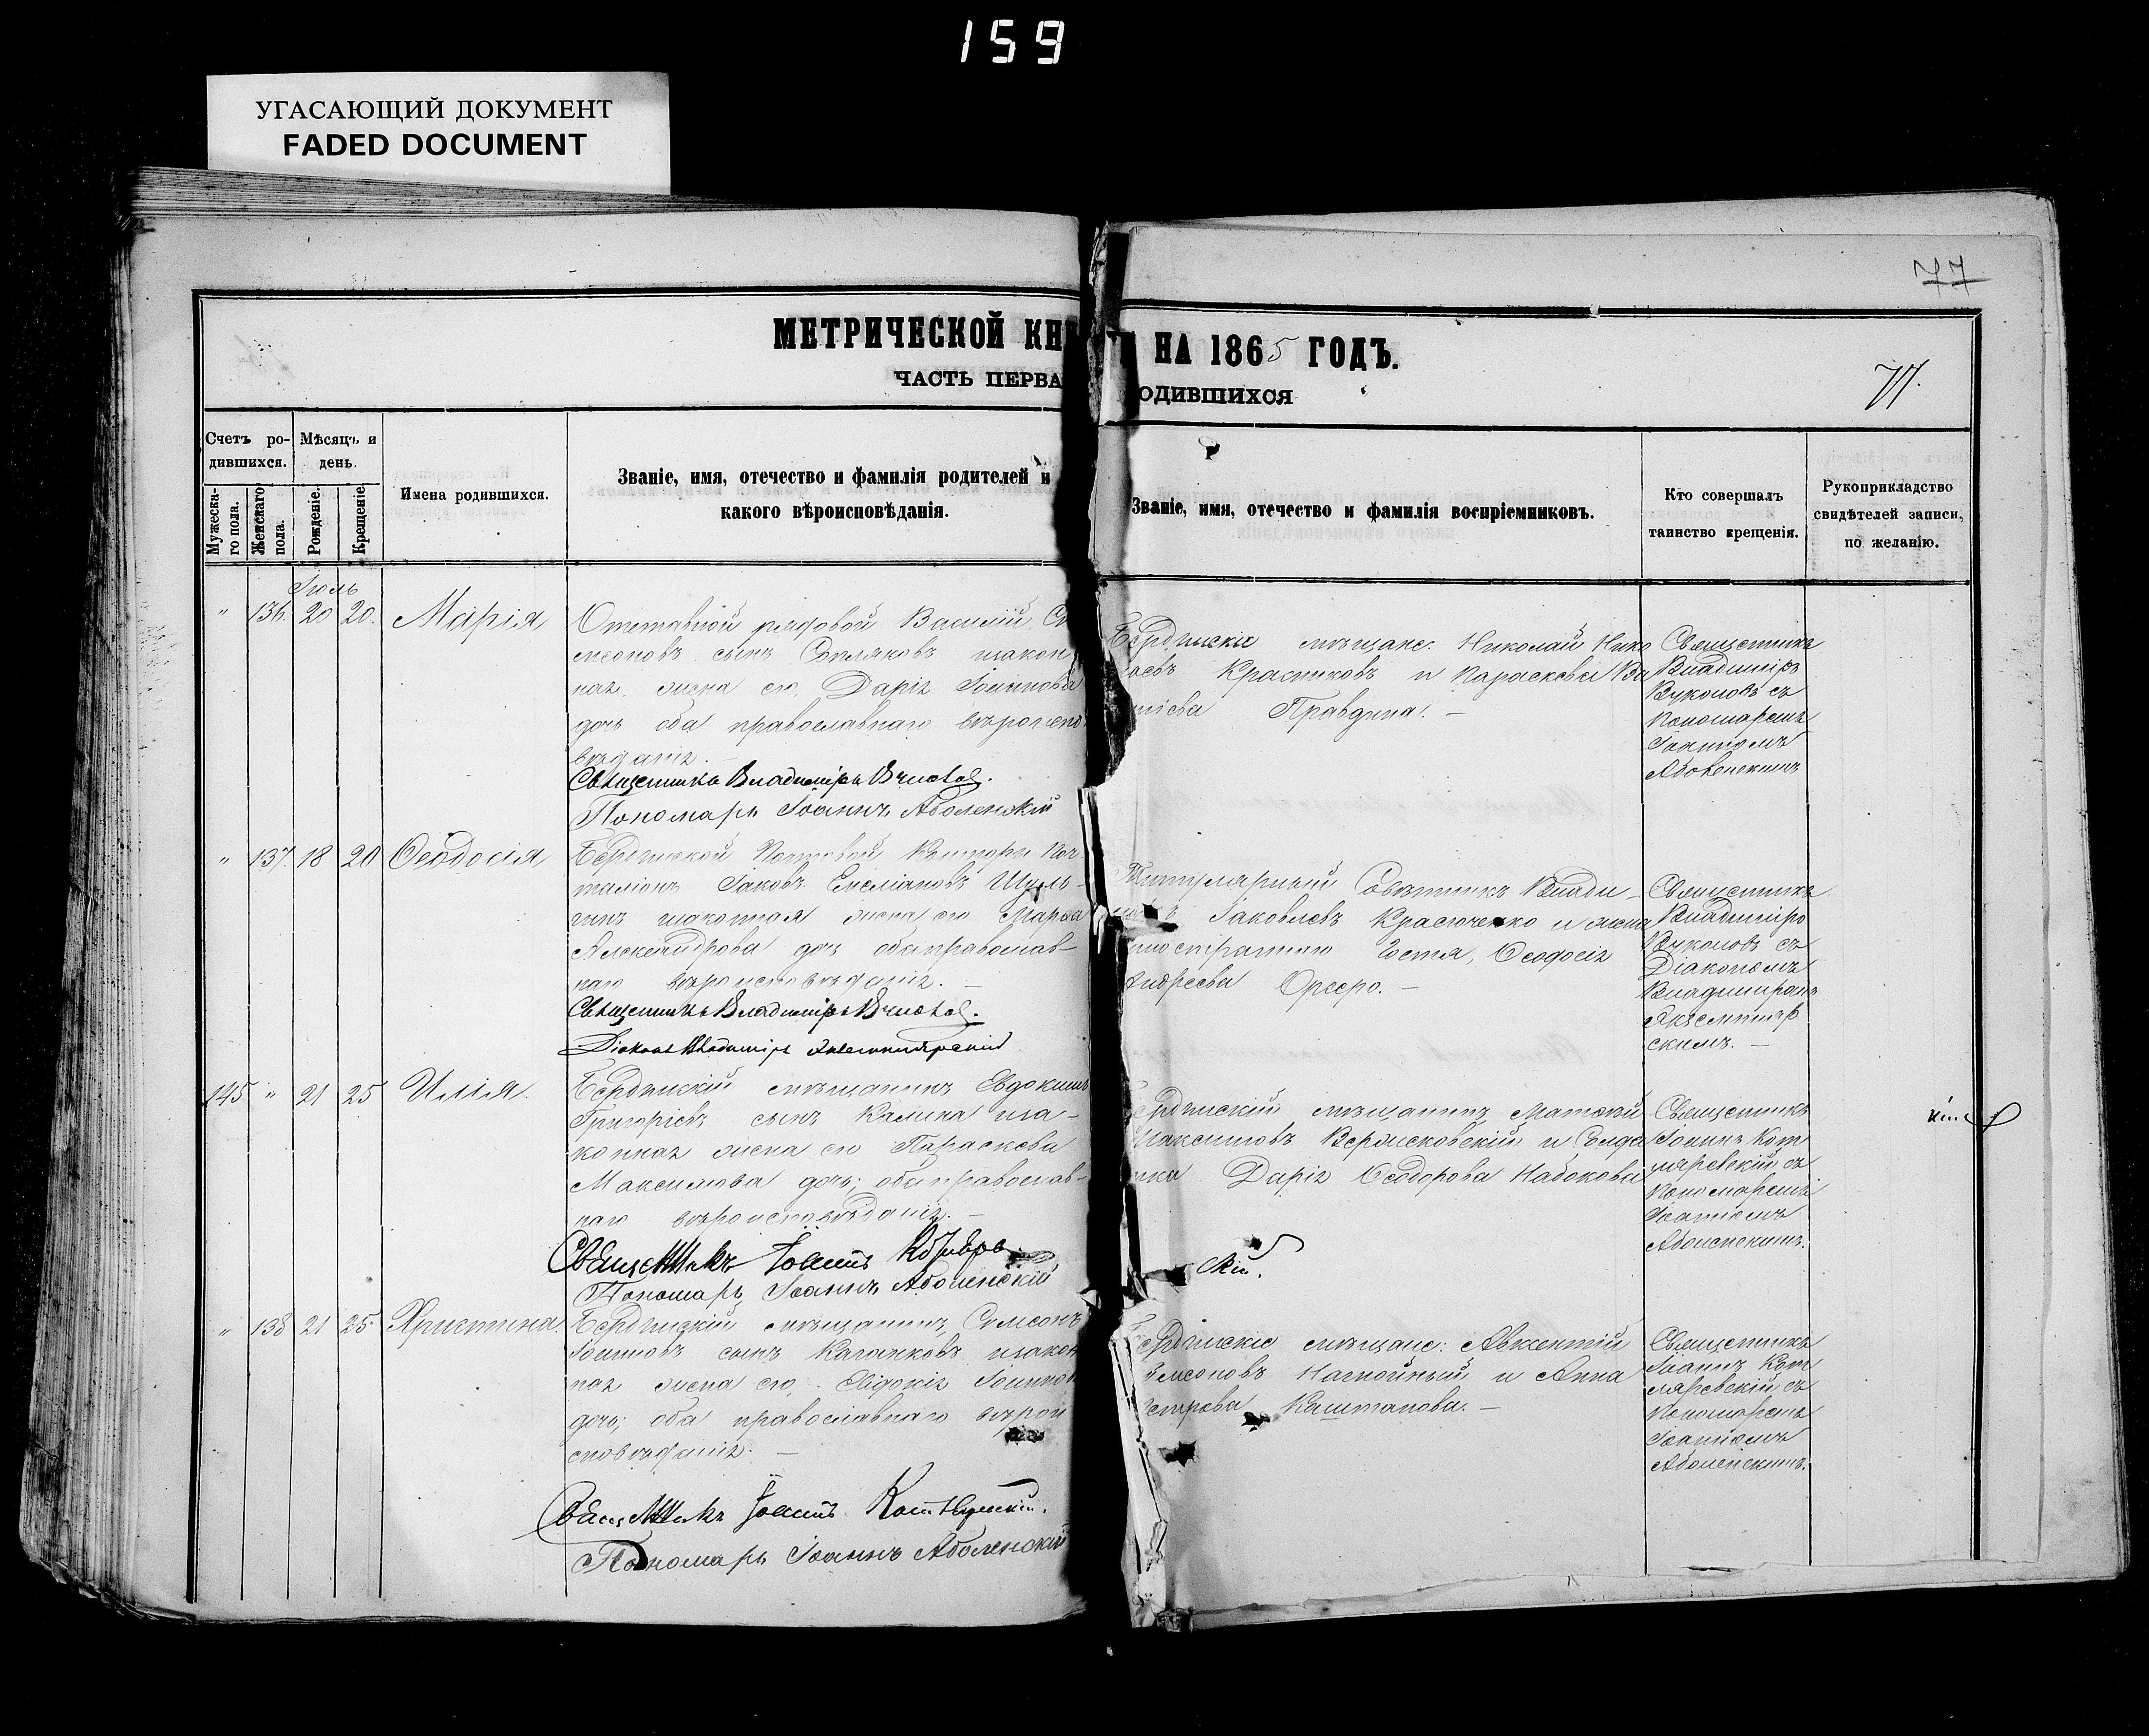 159
УГАСАЮЩИЙ ДОКУМЕНТ
FADED DOCUMENT
77
МЕТРИЧЕСКОЙ КН НА 1865 ГОДЪ.
ЧАСТЬ ПЕРВА ОДИВШИХСЯ
77.
Счетъ ро-
дившихся.
Мѣсяцъ и
день.
Мужеска-
го пола.
Женскаго
пола.
Рожденіе.
Крещеніе.
Имена родившихся.
Званіе, имя, отечество и фамилія родителей и
какого вѣроисповѣданія.
Званіе, имя, отечество и фамилія воспріемниковъ.
Кто совершалъ
таинство крещенія.
Рукоприкладство
свидѣтелей записи,
по желанію.
Іюль
" 136. 20 20. Марія
Отставной рядовой Василій Си
меоновъ сынъ закон
ная жена его Дарія Іоаннова
дочь оба православнаго вѣроиспо
вѣданія. —
Священникъ Владиміръ
Пономарь Іоаннъ Аболенскій
Бердянскіе мѣщане: Николай Нико
лаевъ Красниковъ и Параскева Ва
Правдина. —
Священникъ
Владиміръ
съ
Пономаремъ
Іоанномъ
Аболенскимъ
" 137. 18 20 Ѳеодосія
Бердянской Почтовой Конторы Поч
таліонъ Іаковъ Емеліановъ Шуль-
гинъ законная жена его Марѳа
Александрова дочь оба православ-
наго вѣроисповѣданія. —
Священникъ Владиміръ
Діаконъ Владиміръ Экземплярскій
Титулярный Совѣтникъ Влади-
Іаковлевъ Красюченко и жена
Гостя, Ѳеодосія
Андреева
Священникъ
Владиміръ
съ
Діакономъ
Владиміромъ
Экземпляр
скимъ. —
145 " 21 25 Илія.
Бердянскій мѣщанинъ Евдокимъ
Григоріевъ сынъ Калина за-
конная жена его Параскева
Максимова дочь; оба православ-
наго вѣроисповѣданія. —
Священникъ Іоаннъ Котляров
скій.
Пономарь Іоаннъ Аболенскій
Бердянскій мѣщанинъ Матѳей
Максимовъ и Солда
тка Дарія Ѳеодорова Набокова
Священникъ
Іоаннъ Кот
ляревскій съ
Пономаремъ
Іоанномъ
Аболенскимъ.
" 138 21 25 Христина.
Бердянскій мѣщанинъ Симеонъ
Іоанновъ сынъ закон
ная жена его, Евдокія Іоаннова
дочь; оба православнаго вѣрои
сповѣданія. —
Священникъ Іоаннъ Котляревскій.
Пономарь Іоаннъ Аболенскій
Бердянскіе мѣщане: Авксентій
Нагнойный и Анна
Петрова Каштанова. —
Священникъ
Іоаннъ Кот
ляревскій съ
Пономаремъ
Іоанномъ
Аболенскимъ.